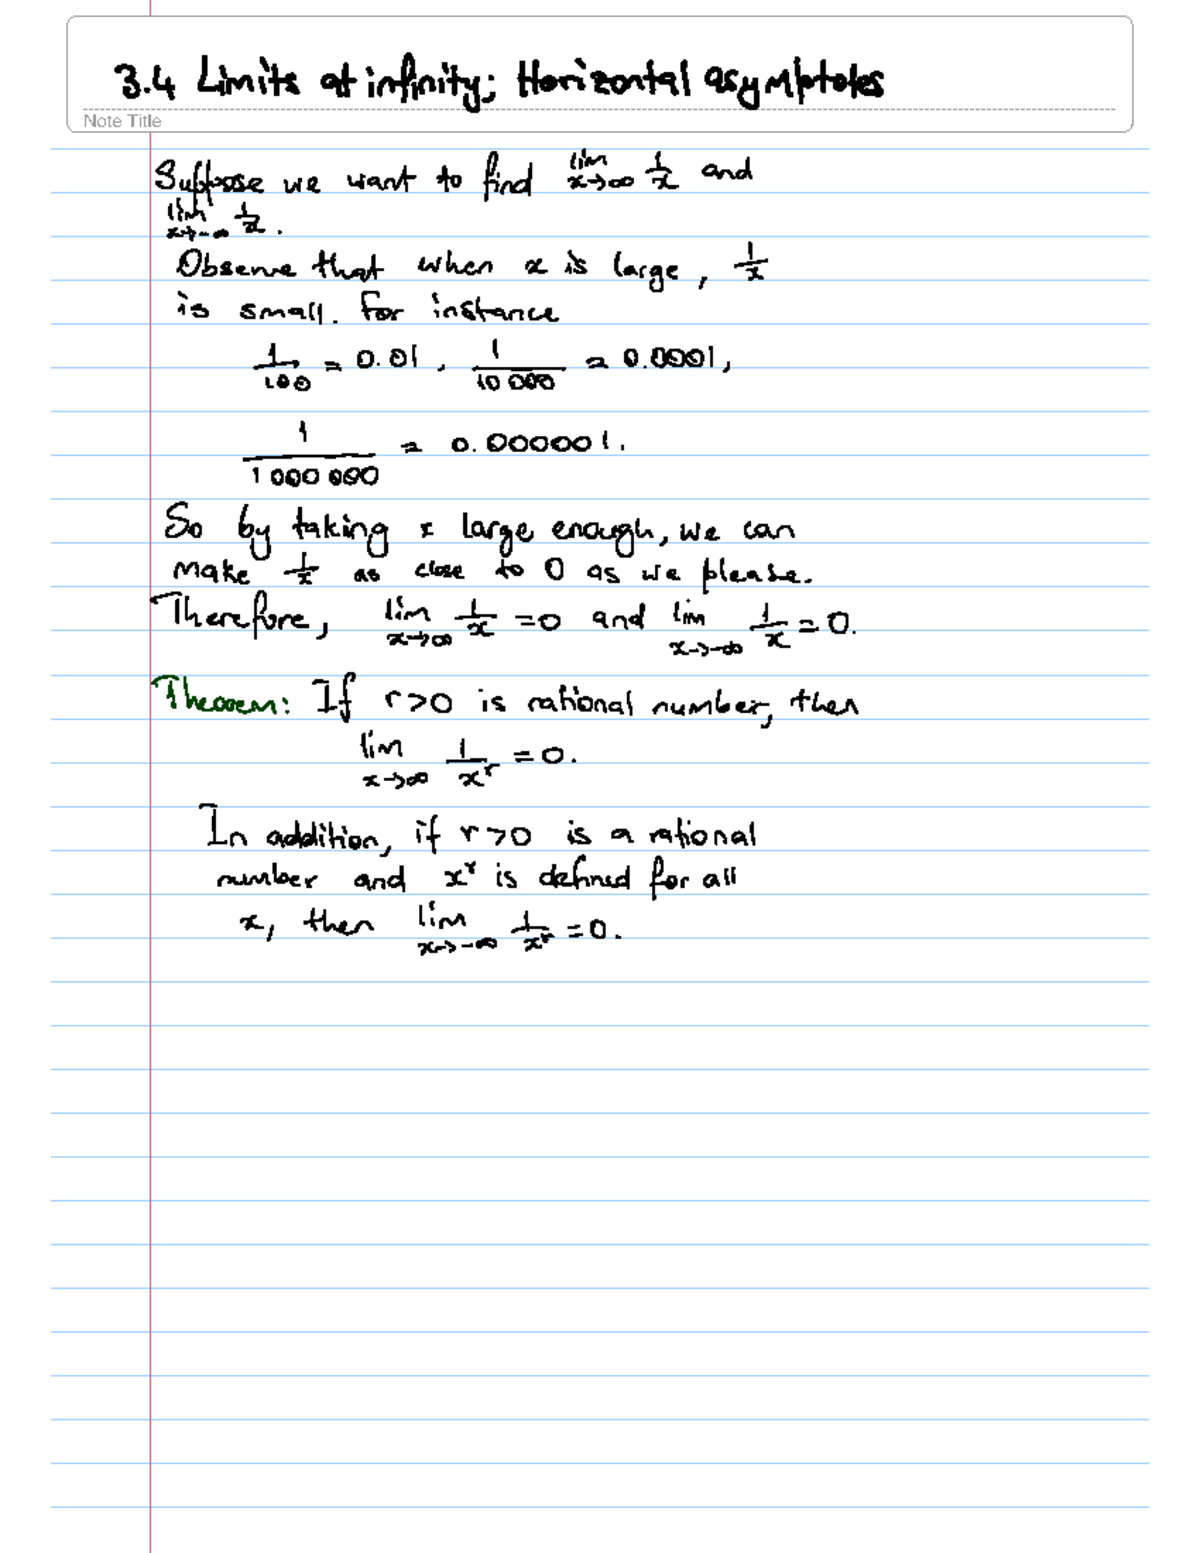 3.4 Limits at infinity; Horizontal asymptotes
Note Title
Suppose we want to find lim x→∞ 1/x and
lim x→-∞ 1/x.
Observe that when x is large, 1/x
is small. For instance
1/100 = 0.01, 1/10 000 = 0.0001,
1/1 000 000 = 0.000001.
So by taking x large enough, we can
make 1/x as close to 0 as we please.
Therefore, lim x→∞ 1/x = 0 and lim x→-∞ 1/x = 0.
Theorem: If r>0 is rational number, then
lim x→∞ 1/xʳ = 0.
In addition, if r>0 is a rational
number and xʳ is defined for all
x, then lim x→-∞ 1/xʳ = 0.